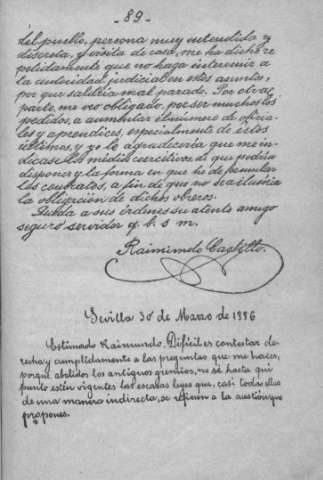 -89-
del pueblo, persona muy entendida y
discreta, y visita de casa, me ha dicho re
petidamente que no haga intervenir a
la autoridad judicial en estos asuntos,
por que saldría mal parado. Por otra
parte, me veo obligado, por ser muchos los
pedidos, a aumentar el número de oficia-
les y aprendices, especialmente de estos
últimos, y yo le agradecería que me in-
dicase los medios coercitivos de que podría
disponer y la forma en que he de formular
los contratos, a fin de que no sea ilusoria
la obligación de dichos obreros.
Queda a sus órdenes su atento amigo
seguro servidor q. b. s. m.
Raimundo Castillo.
Sevilla 30 de Marzo de 1886
Estimado Raimundo: Difícil es contestar de-
recha y cumplidamente a las preguntas que me haces,
porque abolidos los antiguos gremios, no sé hasta qué
punto estén vigentes las escasas leyes que, casi todas ellas
de una manera indirecta, se refieren a la cuestión que
propones.